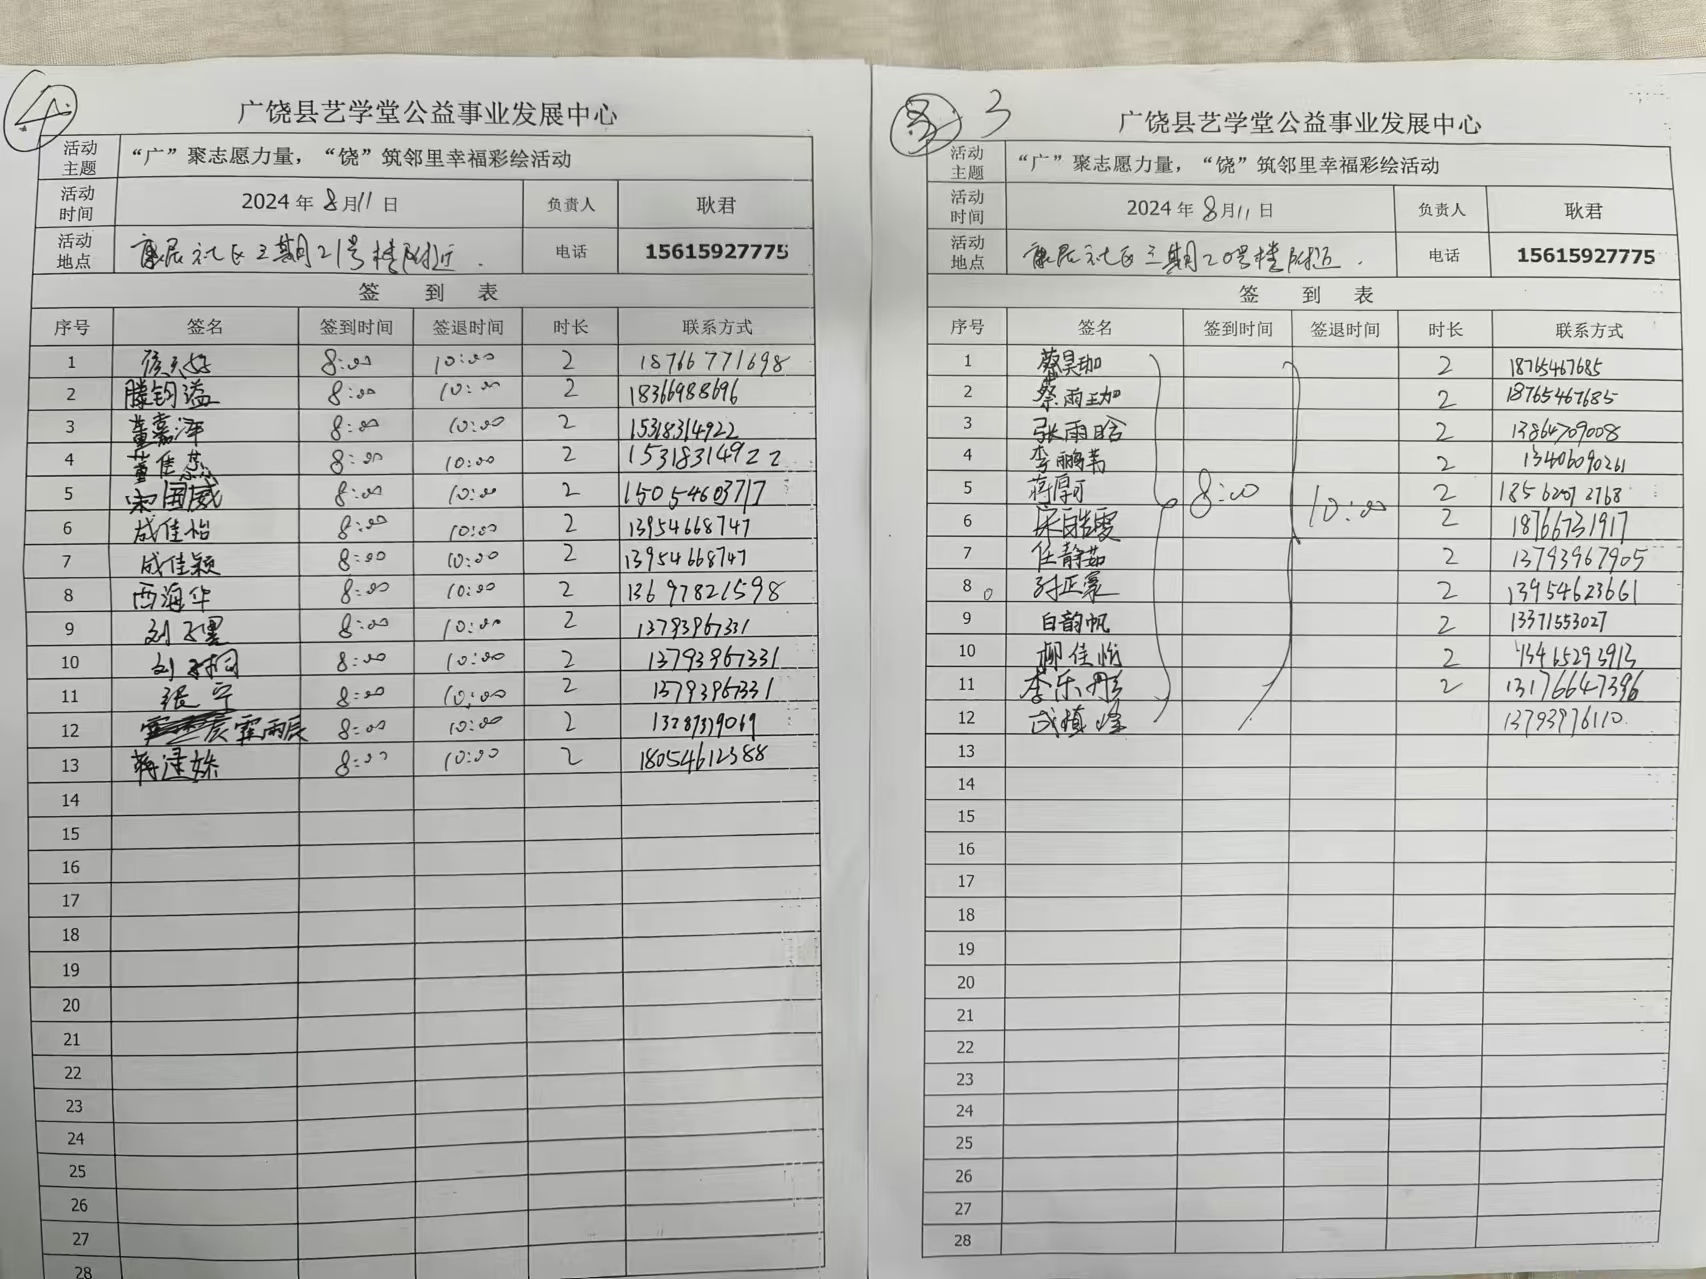 ④
广饶县艺学堂公益事业发展中心
活动主题 “广”聚志愿力量，“饶”筑邻里幸福彩绘活动
活动时间 2024年8月11日 负责人 耿君
活动地点 康居社区三期21号楼附近. 电话 15615927775
签 到 表
序号 签名 签到时间 签退时间 时长 联系方式
1 8:00 10:00 2 18766771698
2 滕钧溢 8:00 10:00 2 18366988696
3 董嘉泽 8:00 10:00 2 15318314922
4 董佳蕊 8:00 10:00 2 15318314922
5 宋国威 8:00 10:00 2 15054603717
6 成佳怡 8:00 10:00 2 13954668747
7 成佳颖 8:00 10:00 2 13954668747
8 西海华 8:00 10:00 2 13697821598
9 刘 8:00 10:00 2 13793967331
10 刘 8:00 10:00 2 13793967331
11 张宁 8:00 10:00 2 13793967331
12 霍雨辰 8:00 10:00 2
13 8:00 10:00 2 18054612388
14
15
16
17
18
19
20
21
22
23
24
25
26
27
28
3
广饶县艺学堂公益事业发展中心
活动主题 “广”聚志愿力量，“饶”筑邻里幸福彩绘活动
活动时间 2024年8月11日 负责人 耿君
活动地点 康居社区三期20号楼附近. 电话 15615927775
签 到 表
序号 签名 签到时间 签退时间 时长 联系方式
1 蔡昊珈 2 18765467685
2 蔡雨珈 2 18765467685
3 张雨晗 2 13864709008
4 李鹏苇 2 13406090261
5 蒋厚可 8:00 10:00 2 18562072768
6 2 18766731917
7 任静茹 2 13793967905
8 正豪 2 13954623661
9 白韵帆 2 13371553027
10 柳佳悦 2 13465293913
11 李乐彤 2 13176647396
12 成镇峰 13793976110
13
14
15
16
17
18
19
20
21
22
23
24
25
26
27
28